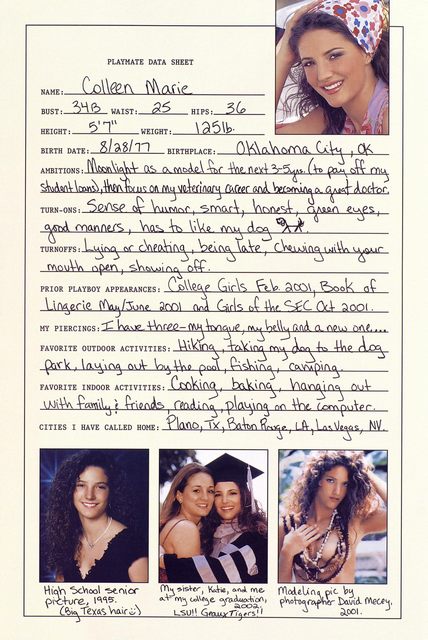 PLAYMATE DATA SHEET
NAME: Colleen Marie
BUST: 34B WAIST: 25 HIPS: 36
HEIGHT: 5'7" WEIGHT: 125lb.
BIRTH DATE: 8/28/77 BIRTHPLACE: Oklahoma City, OK
AMBITIONS: Moonlight as a model for the next 3-5yrs. (to pay off my
student loans), then focus on my veterinary career and becoming a great doctor.
TURN-ONS: Sense of humor, smart, honest, green eyes,
good manners, has to like my dog
TURNOFFS: Lying or cheating, being late, chewing with your
mouth open, showing off.
PRIOR PLAYBOY APPEARANCES: College Girls Feb. 2001, Book of
Lingerie May/June 2001 and Girls of the SEC Oct 2001.
MY PIERCINGS: I have three-my tongue, my belly and a new one....
FAVORITE OUTDOOR ACTIVITIES: Hiking, taking my dog to the dog
park, laying out by the pool, fishing, camping.
FAVORITE INDOOR ACTIVITIES: Cooking, baking, hanging out
with family & friends, reading, playing on the computer.
CITIES I HAVE CALLED HOME: Plano, TX, Baton Rouge, LA, Las Vegas, NV
High School senior
picture, 1995.
(Big Texas hair :)
My sister, Katie, and me
at my college graduation,
2002.
LSU!! Geaux Tigers!!
Modeling pic by
photographer David Mecey,
2001.